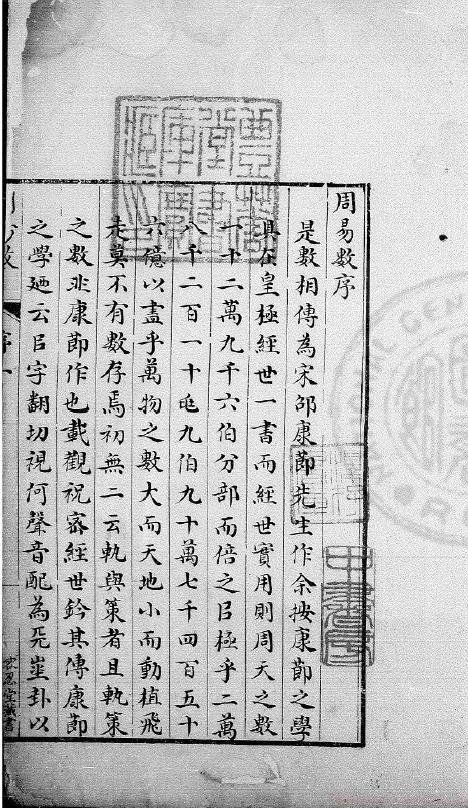 周易數序
是數相傳為宋邵康莭先生作余按康莭之學
具在皇極經世一書而經世實用則周天之數
一十二萬九千六伯分部而倍之㠯極乎二萬
八千二百一十㐌九伯九十萬七千四百五十
六億以盡乎萬物之數大而天地小而動植飛
走莫不有數存焉初無二云軌與策者且軌策
之數非康莭作也載觀祝宻經世鈐其傳康莭
之學廼云㠯字翻切視何聲音配為旡𡴀卦以
序一